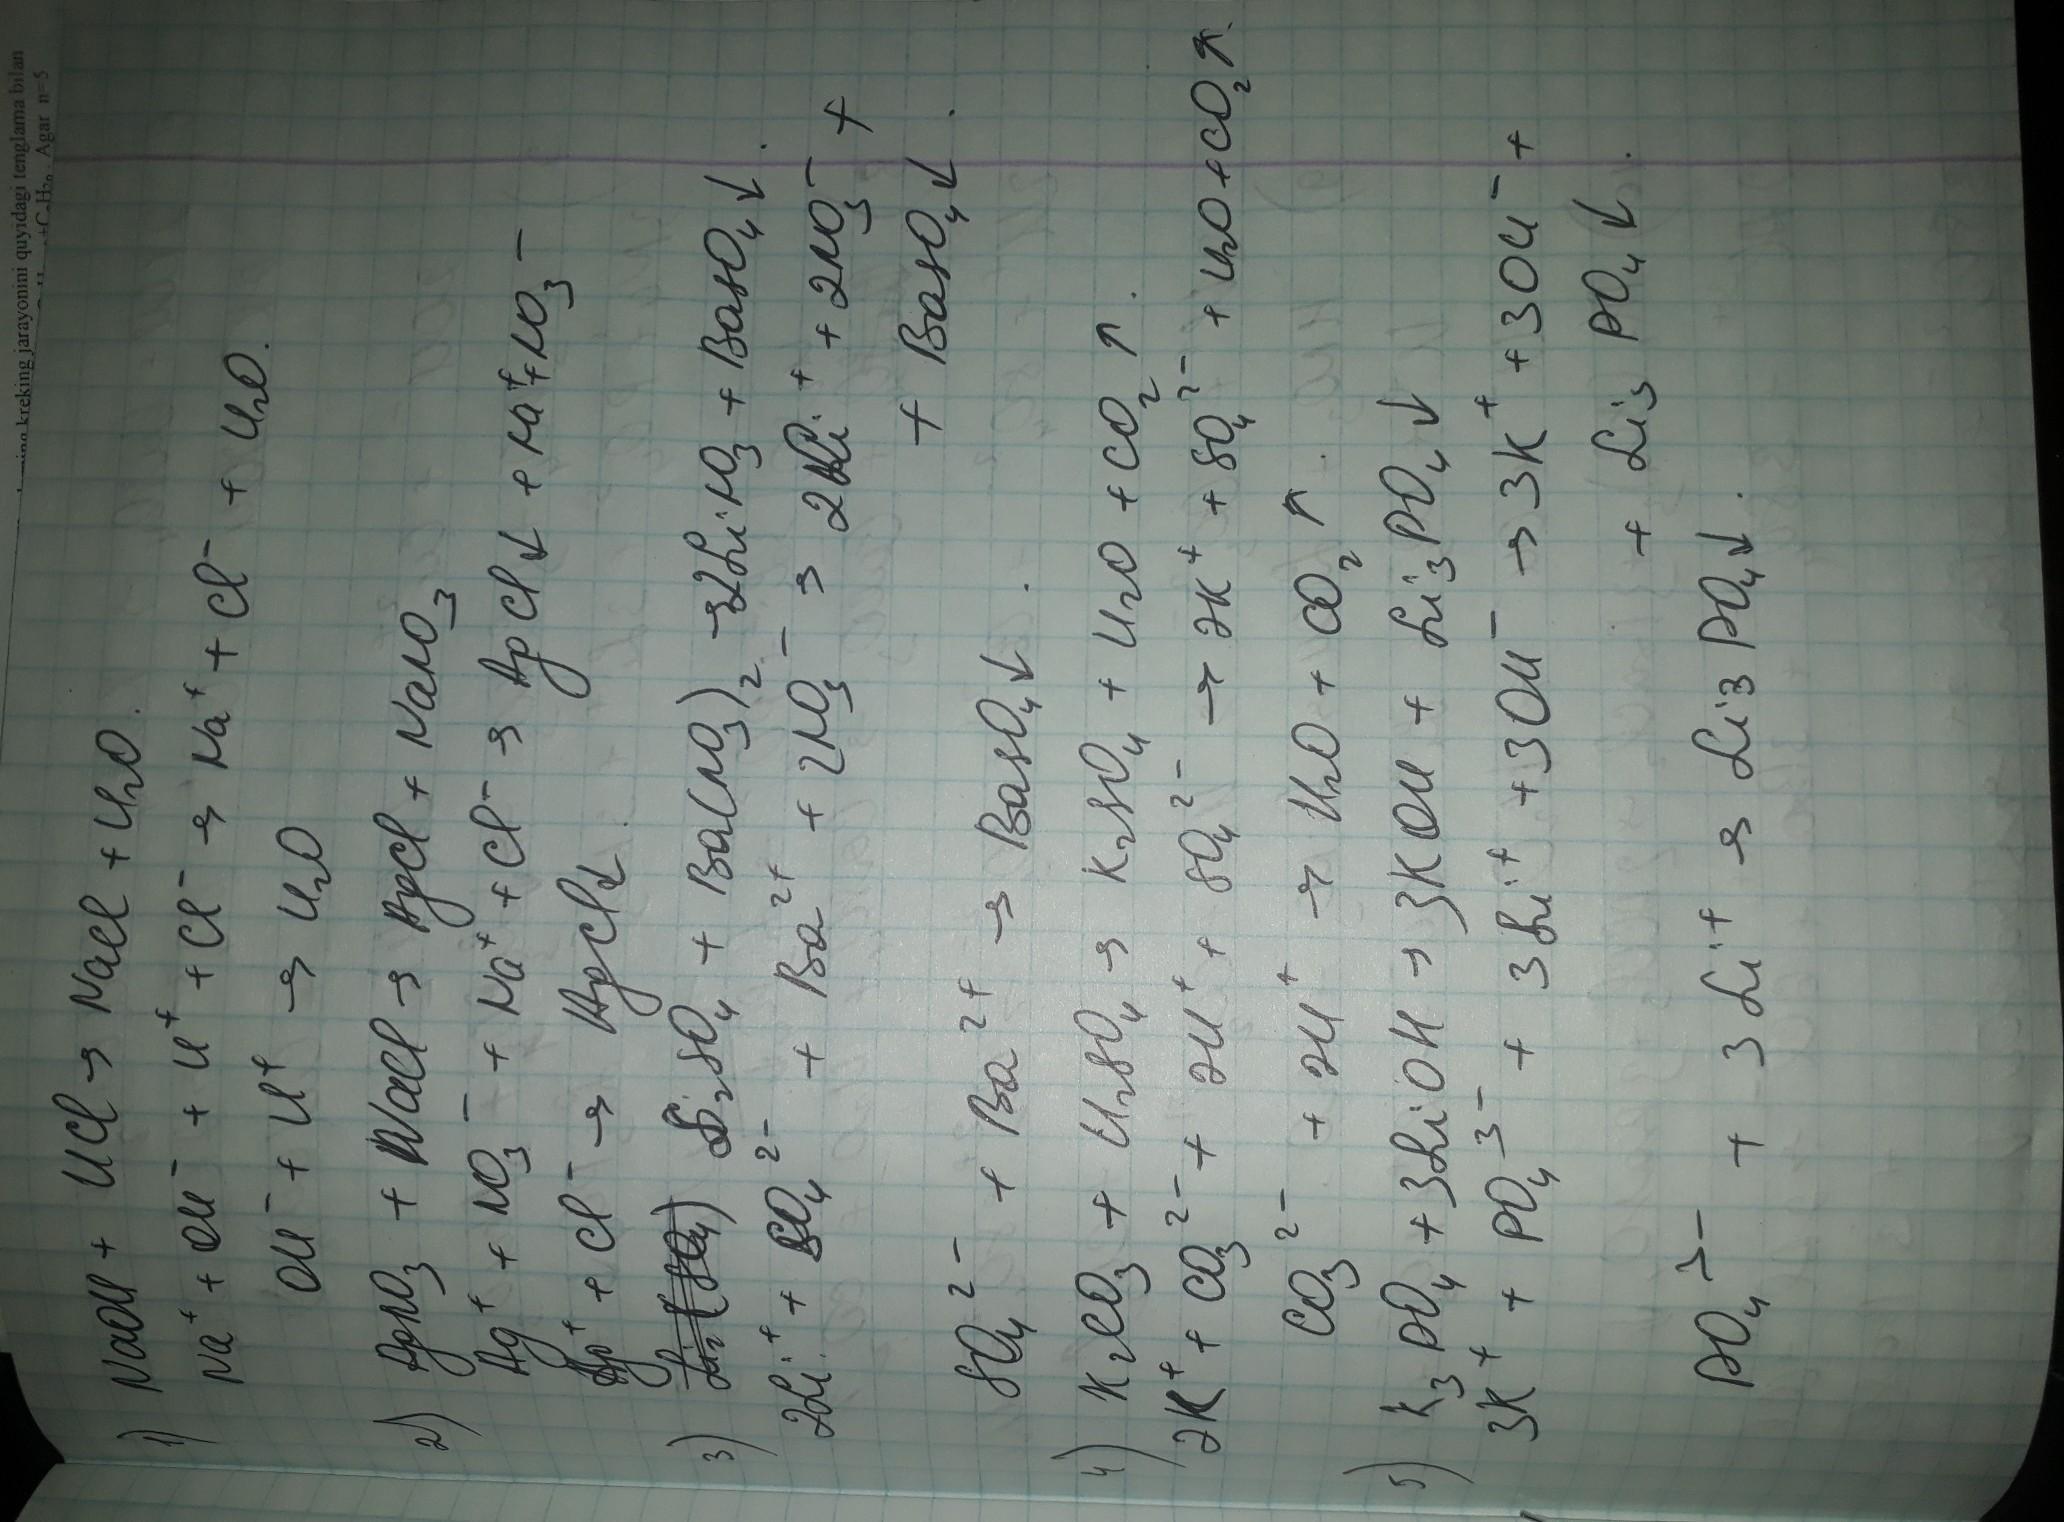 ning kreking jarayonini quyidagi tenglama bilan
+C₂H₂₀. Agar n=5
1) NaOH + HCl → NaCl + H₂O.
Na⁺ + OH⁻ + H⁺ + Cl⁻ → Na⁺ + Cl⁻ + H₂O.
OH⁻ + H⁺ → H₂O
2) AgNO₃ + NaCl → AgCl + NaNO₃
Ag⁺ + NO₃⁻ + Na⁺ + Cl⁻ → AgCl↓ + Na⁺ + NO₃⁻
Ag⁺ + Cl⁻ → AgCl↓.
3) Li₂SO₄ + Ba(NO₃)₂ → 2LiNO₃ + BaSO₄↓.
2Li⁺ + SO₄²⁻ + Ba²⁺ + 2NO₃⁻ → 2Li⁺ + 2NO₃⁻ +
+ BaSO₄↓.
SO₄²⁻ + Ba²⁺ → BaSO₄↓.
4) K₂CO₃ + H₂SO₄ → K₂SO₄ + H₂O + CO₂↑.
2K⁺ + CO₃²⁻ + 2H⁺ + SO₄²⁻ → 2K⁺ + SO₄²⁻ + H₂O + CO₂↑.
CO₃²⁻ + 2H⁺ → H₂O + CO₂↑.
5) K₃PO₄ + 3LiOH → 3KOH + Li₃PO₄↓
3K⁺ + PO₄³⁻ + 3Li⁺ + 3OH⁻ → 3K⁺ + 3OH⁻ +
+ Li₃PO₄↓.
PO₄³⁻ + 3Li⁺ → Li₃PO₄↓.